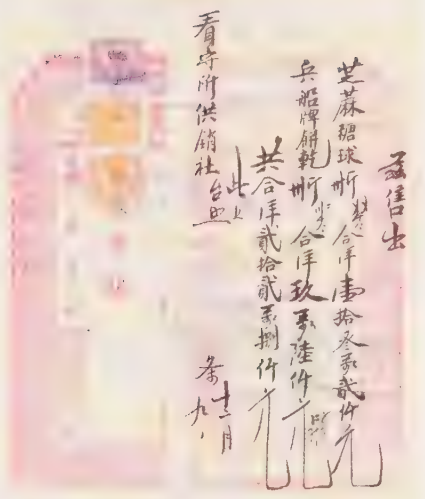 茲售出
芝蔴糖球 斤 合洋壹拾叁萬貳仟元
兵船牌餅乾 斤 合洋玖萬陸仟元
共合洋貳拾貳萬捌仟元
此上
看守所供銷社台照
十二月九
条